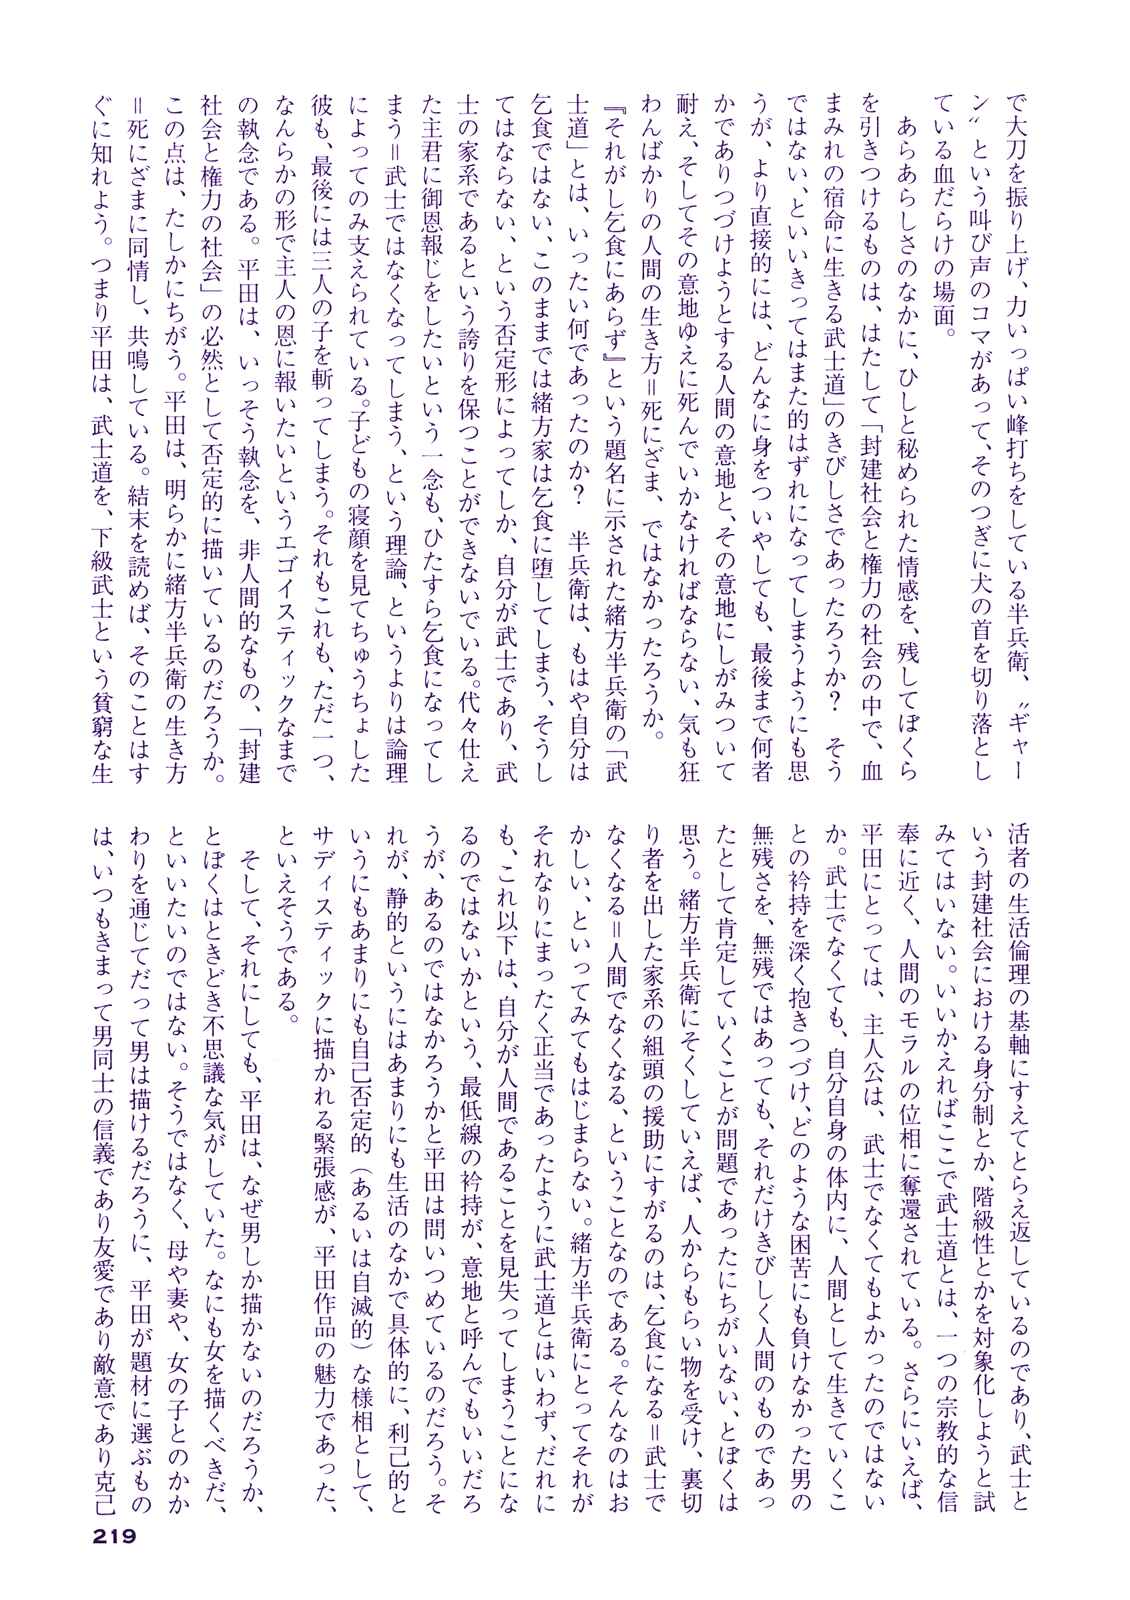 で大刀を振り上げ、力いっぱい峰打ちをしている半兵衛、〝ギャー
ン〟という叫び声のコマがあって、そのつぎに犬の首を切り落とし
ている血だらけの場面。
　あらあらしさのなかに、ひしと秘められた情感を、残してぼくら
を引きつけるものは、はたして「封建社会と権力の社会の中で、血
まみれの宿命に生きる武士道」のきびしさであったろうか？　そう
ではない、といいきってはまた的はずれになってしまうようにも思
うが、より直接的には、どんなに身をついやしても、最後まで何者
かでありつづけようとする人間の意地と、その意地にしがみついて
耐え、そしてその意地ゆえに死んでいかなければならない、気も狂
わんばかりの人間の生き方＝死にざま、ではなかったろうか。
『それがし乞食にあらず』という題名に示された緒方半兵衛の「武
士道」とは、いったい何であったのか？　半兵衛は、もはや自分は
乞食ではない、このままでは緒方家は乞食に堕してしまう、そうし
てはならない、という否定形によってしか、自分が武士であり、武
士の家系であるという誇りを保つことができないでいる。代々仕え
た主君に御恩報じをしたいという一念も、ひたすら乞食になってし
まう＝武士ではなくなってしまう、という理論、というよりは論理
によってのみ支えられている。子どもの寝顔を見てちゅうちょした
彼も、最後には三人の子を斬ってしまう。それもこれも、ただ一つ、
なんらかの形で主人の恩に報いたいというエゴイスティックなまで
の執念である。平田は、いっそう執念を、非人間的なもの、「封建
社会と権力の社会」の必然として否定的に描いているのだろうか。
この点は、たしかにちがう。平田は、明らかに緒方半兵衛の生き方
＝死にざまに同情し、共鳴している。結末を読めば、そのことはす
ぐに知れよう。つまり平田は、武士道を、下級武士という貧窮な生
活者の生活倫理の基軸にすえてとらえ返しているのであり、武士と
いう封建社会における身分制とか、階級性とかを対象化しようと試
みてはいない。いいかえればここで武士道とは、一つの宗教的な信
奉に近く、人間のモラルの位相に奪還されている。さらにいえば、
平田にとっては、主人公は、武士でなくてもよかったのではない
か。武士でなくても、自分自身の体内に、人間として生きていくこ
との衿持を深く抱きつづけ、どのような困苦にも負けなかった男の
無残さを、無残ではあっても、それだけきびしく人間のものであっ
たとして肯定していくことが問題であったにちがいない、とぼくは
思う。緒方半兵衛にそくしていえば、人からもらい物を受け、裏切
り者を出した家系の組頭の援助にすがるのは、乞食になる＝武士で
なくなる＝人間でなくなる、ということなのである。そんなのはお
かしい、といってみてもはじまらない。緒方半兵衛にとってそれが
それなりにまったく正当であったように武士道とはいわず、だれに
も、これ以下は、自分が人間であることを見失ってしまうことにな
るのではないかという、最低線の衿持が、意地と呼んでもいいだろ
うが、あるのではなかろうかと平田は問いつめているのだろう。そ
れが、静的というにはあまりにも生活のなかで具体的に、利己的と
いうにもあまりにも自己否定的（あるいは自滅的）な様相として、
サディスティックに描かれる緊張感が、平田作品の魅力であった、
といえそうである。
　そして、それにしても、平田は、なぜ男しか描かないのだろうか、
とぼくはときどき不思議な気がしていた。なにも女を描くべきだ、
といいたいのではない。そうではなく、母や妻や、女の子とのかか
わりを通じてだって男は描けるだろうに、平田が題材に選ぶもの
は、いつもきまって男同士の信義であり友愛であり敵意であり克己
219